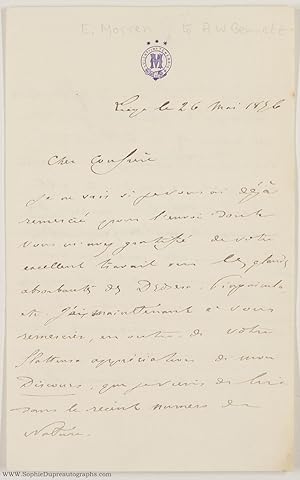 E. Morren to A W Bennett
M
Liège le 26 Mai 1876
Cher Confrère
Je ne sais si je vous ai déjà
remercié pour l'envoi dont
vous m'avez gratifié de votre
excellent travail sur les glandes
absorbantes des Drosera, Pinguicula
etc. J'ai maintenant à vous
remercier, en outre, de votre
flatteuse appréciation de mon
Discours, que je viens de lire
dans le récent numéro de
Nature.
(www.SophieDupreautographs.com)